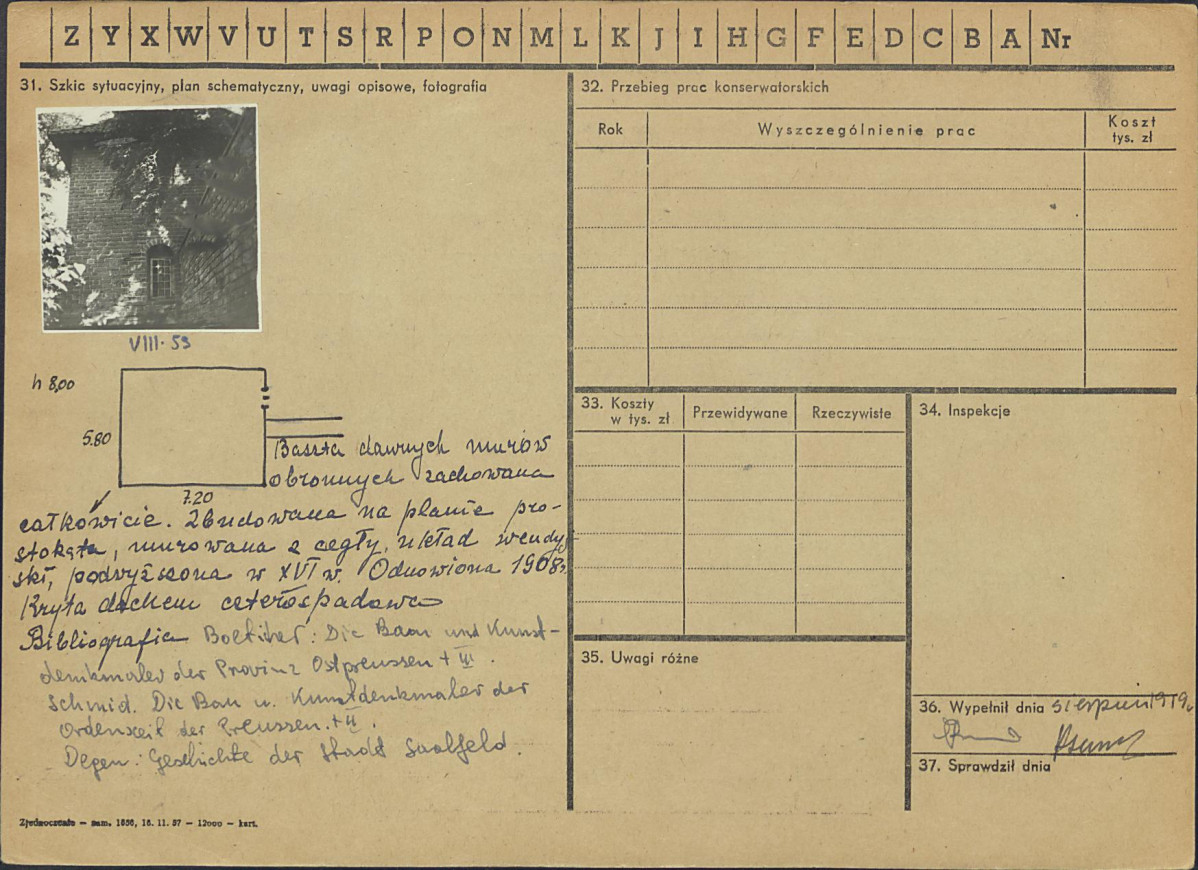 Z Y X W V U T S R P O N M L K J I H G F E D C B A Nr
31. Szkic sytuacyjny, plan schematyczny, uwagi opisowe, fotografia
VIII·53
h 8,00
5.80
7.20
Baszta dawnych murów
obronnych zachowana
całkowicie. Zbudowana na planie pro-
stokąta, murowana z cegły, układ wendyj-
ski, podwyższona w XVI w. Odnowiona 1908r.
Kryta dachem czterospadowo
Bibliografia Boetticher: Die Bau und Kunst-
denkmaler der Provinz Ostpreussen t III.
Schmid. Die Bau u. Kunstdenkmaler der
Ordenszeit der Preussen. t II.
Degen: Geschichte der Stadt Saalfeld.
Zjednoczenie – zam. 1856, 16. 11. 57 – 12000 – kart.
32. Przebieg prac konserwatorskich
Rok Wyszczególnienie prac Koszt
tys. zł
33. Koszty
w tys. zł Przewidywane Rzeczywiste
34. Inspekcje
35. Uwagi różne
36. Wypełnił dnia sierpień
37. Sprawdził dnia